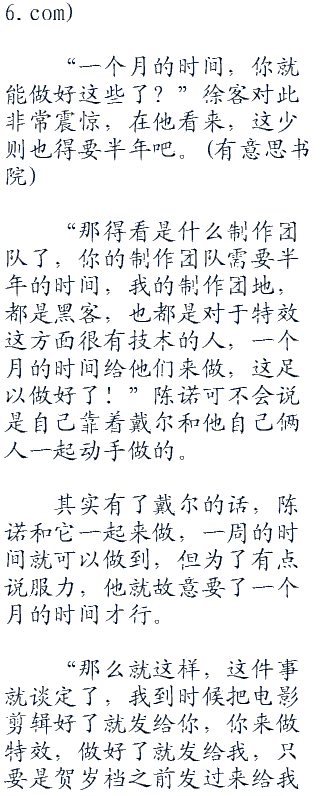 6.com)
“一个月的时间，你就
能做好这些了？”徐客对此
非常震惊，在他看来，这少
则也得要半年吧。(有意思书
院)
“那得看是什么制作团
队了，你的制作团队需要半
年的时间，我的制作团地，
都是黑客，也都是对于特效
这方面很有技术的人，一个
月的时间给他们来做，这足
以做好了！”陈诺可不会说
是自己靠着戴尔和他自己俩
人一起动手做的。
其实有了戴尔的话，陈
诺和它一起来做，一周的时
间就可以做到，但为了有点
说服力，他就故意要了一个
月的时间才行。
“那么就这样，这件事
就谈定了，我到时候把电影
剪辑好了就发给你，你来做
特效，做好了就发给我，只
要是贺岁档之前发过来给我